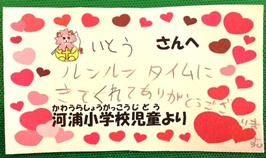 いとう さんへ
ルンルン タイムに
きてくれてありがとうござ
います
かわうらしょうがっこうじどう
河浦小学校児童より